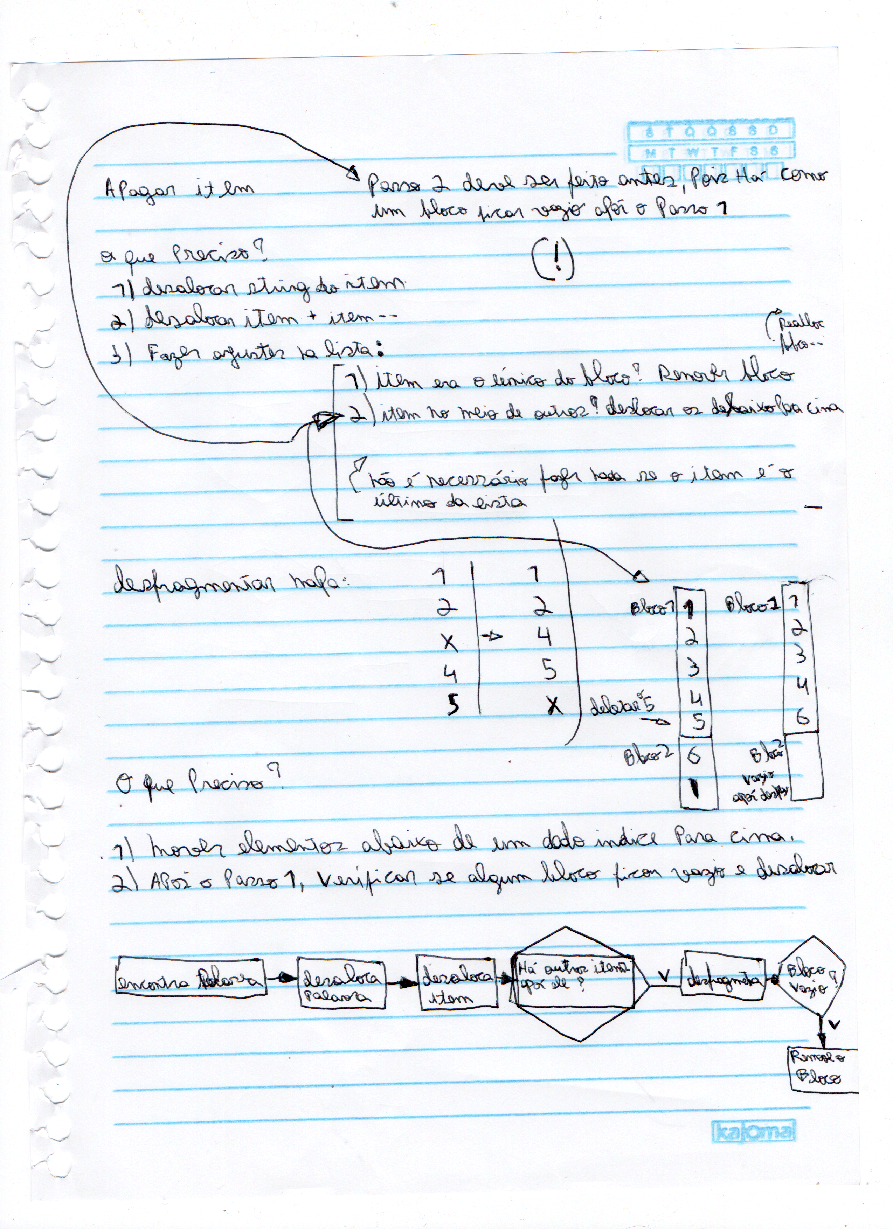 S T Q Q S S D
M T W T F S S
Apagar item
Passo 2 deve ser feito antes, pois Há como
um bloco ficar vazio após o Passo 1
(!)
O que Preciso?
1) desalocar string do item
2) desalocar item + item--
3) Fazer ajustes na lista:
Realloc
bloco--
1) item era o único do bloco? Remover bloco
2) item no meio de outros? deslocar os debaixo pra cima
não é necessário fazer nada se o item é o
último da lista
desfragmentar mapa:
1 | 1
2 | 2
X → 4
4 | 5
5 | X
Bloco 1
1
2
3
4
5
deletar 5
Bloco 2
6
Bloco 1
1
2
3
4
6
Bloco 2
vazio
após
O que Preciso?
1) mover elementos abaixo de um dado indice Para cima.
2) Após o Passo 1, verificar se algum bloco ficou vazio e desalocar
encontra Palavra
desaloca
Palavra
desaloca
item
Há outros itens
após ele?
V
desfragmenta
Bloco
vazio?
V
Remove o
Bloco
kajoma